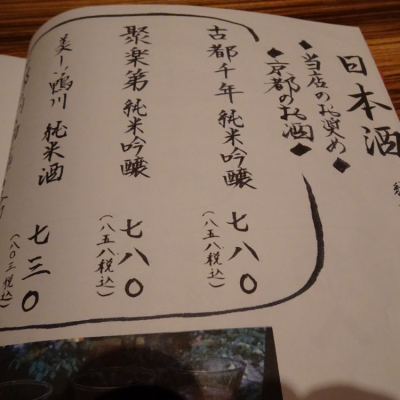 日本酒
◆当店のお奨め◆
◆京都のお酒◆
古都千年 純米吟醸 七八〇
(八五八税込)
聚楽第 純米吟醸 七八〇
(八五八税込)
美し鴨川 純米酒 七三〇
(八〇三税込)